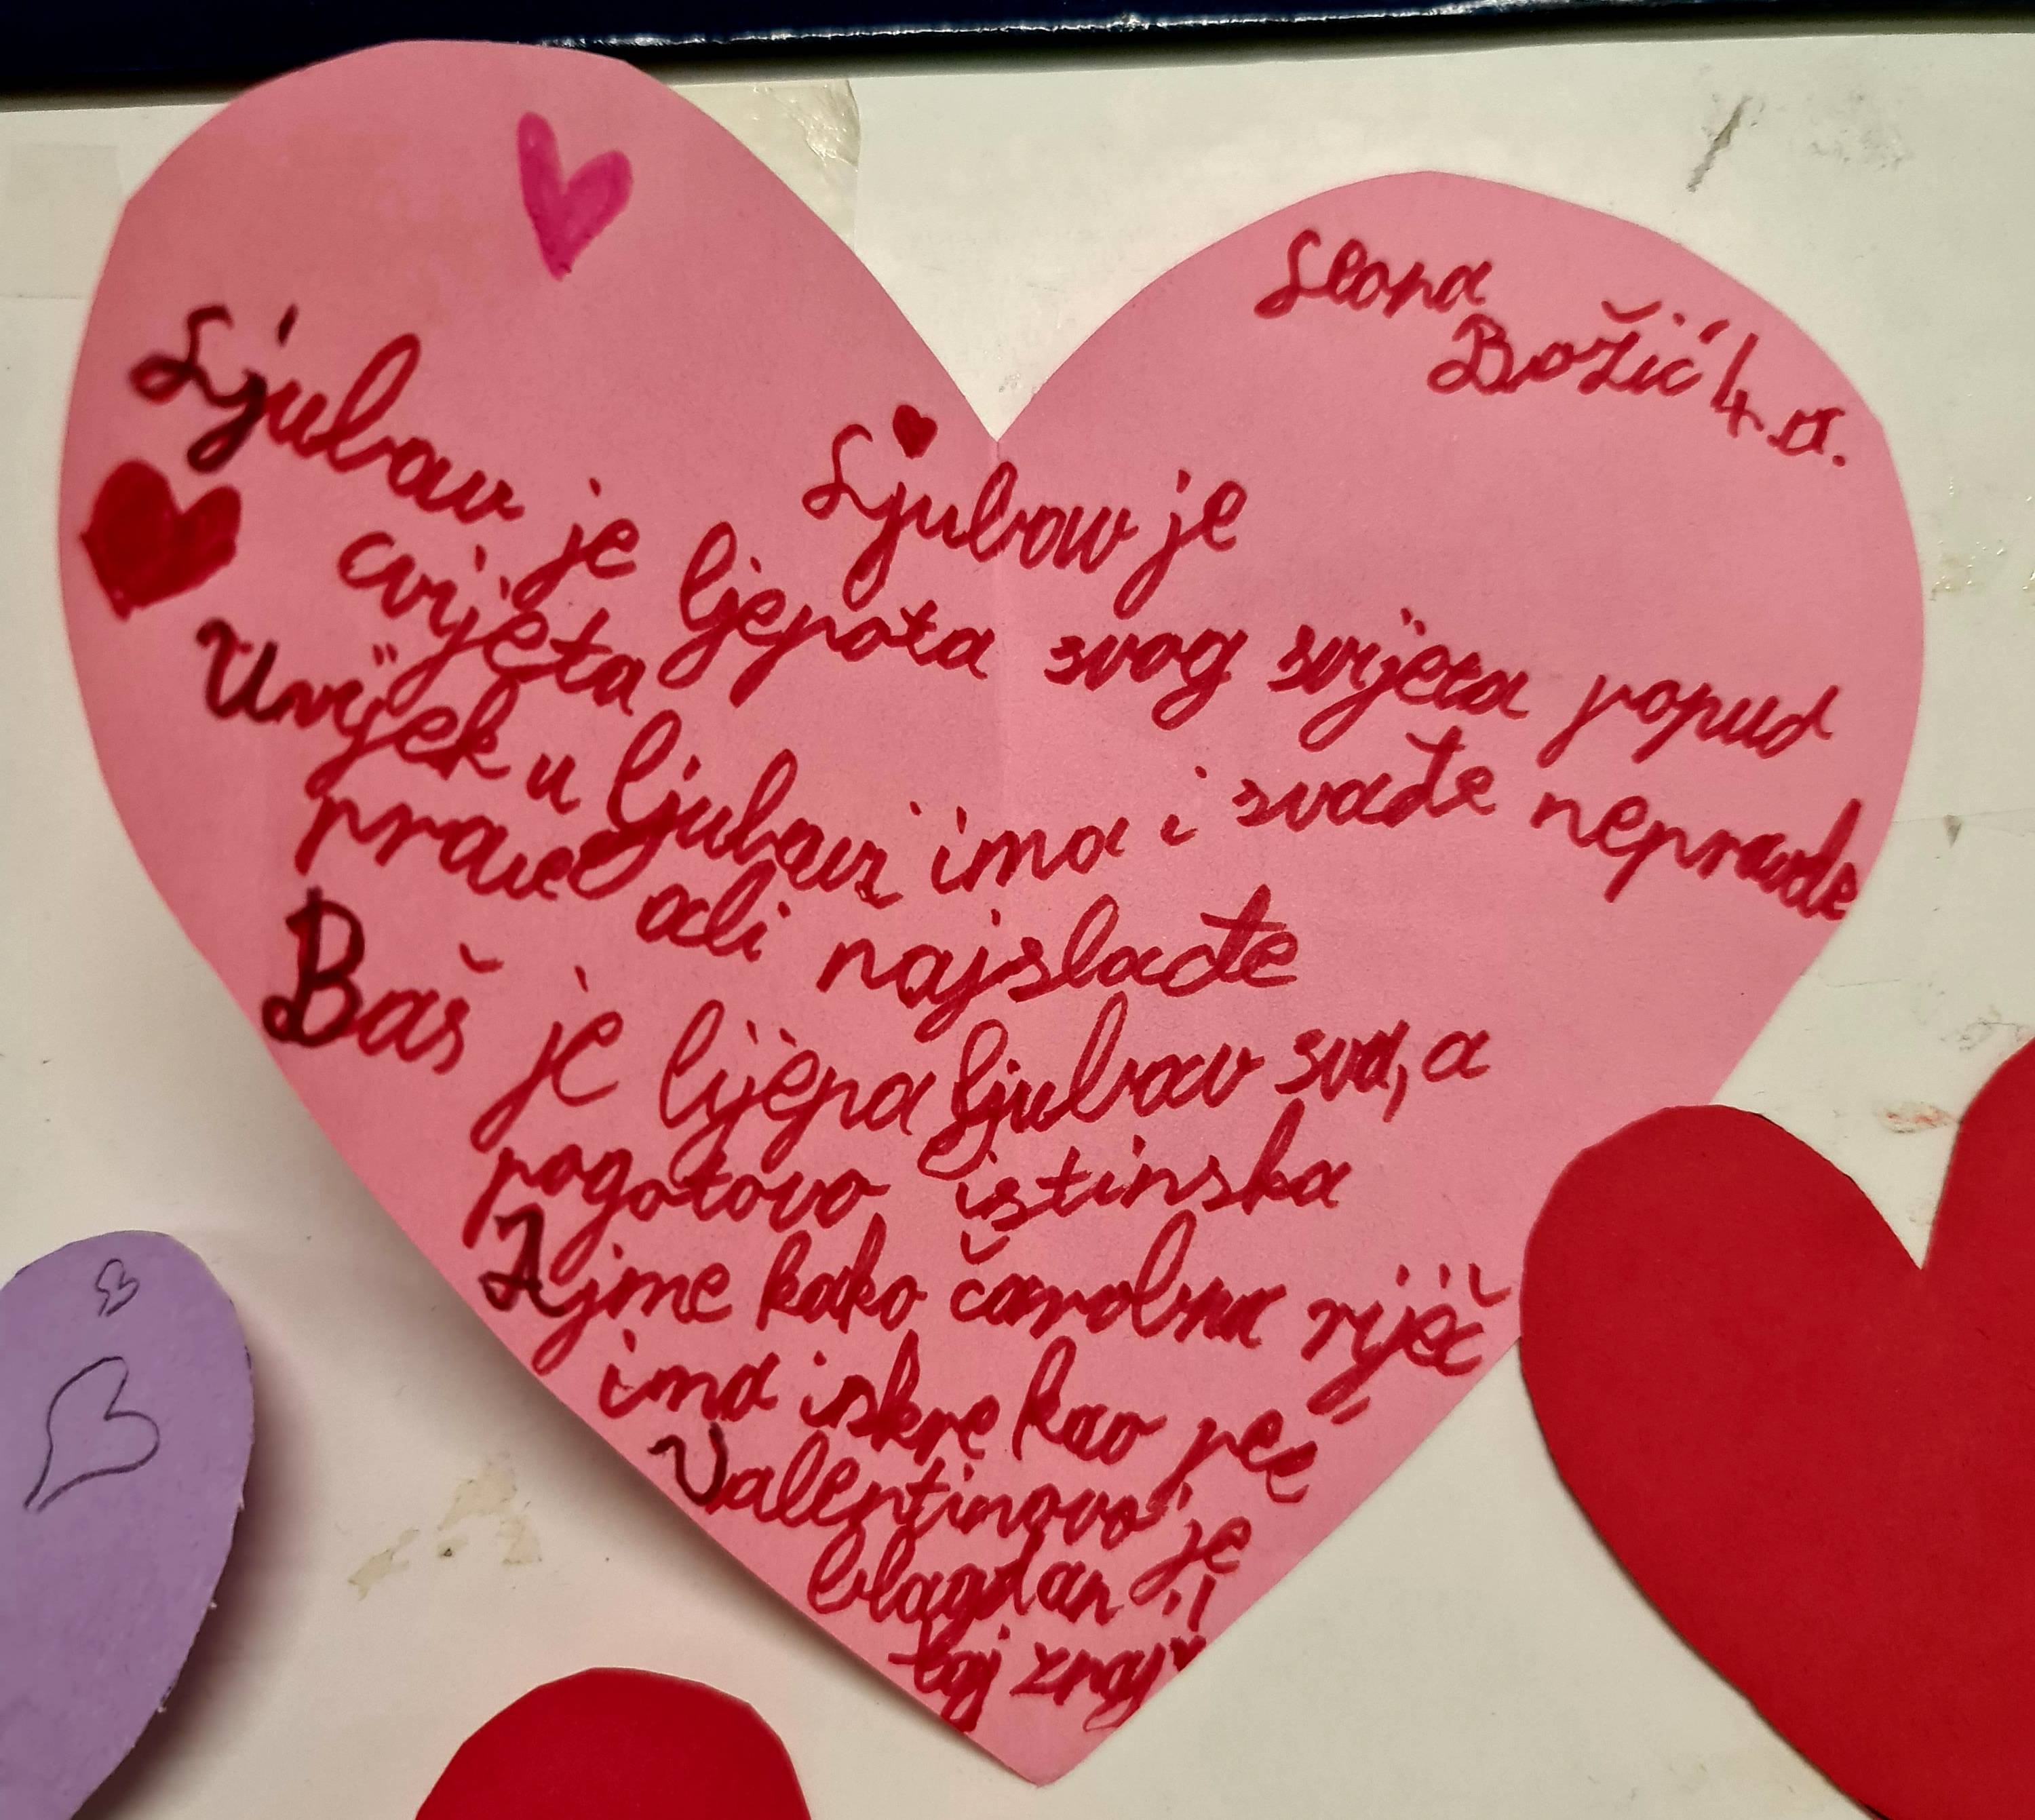 Leona
Božić 4.a.
Ljubav je
Ljubav je ljepota svog svijeta poput
cvijeta
Uvijek u ljubavi ima i svađe nepravde
prave ali najslađe
Baš je lijepa ljubav sva, a
pogotovo istinska
Ajme kako čarobna riječ
ima iskre kao peć
Valentinovo je
blagdan
taj znaj